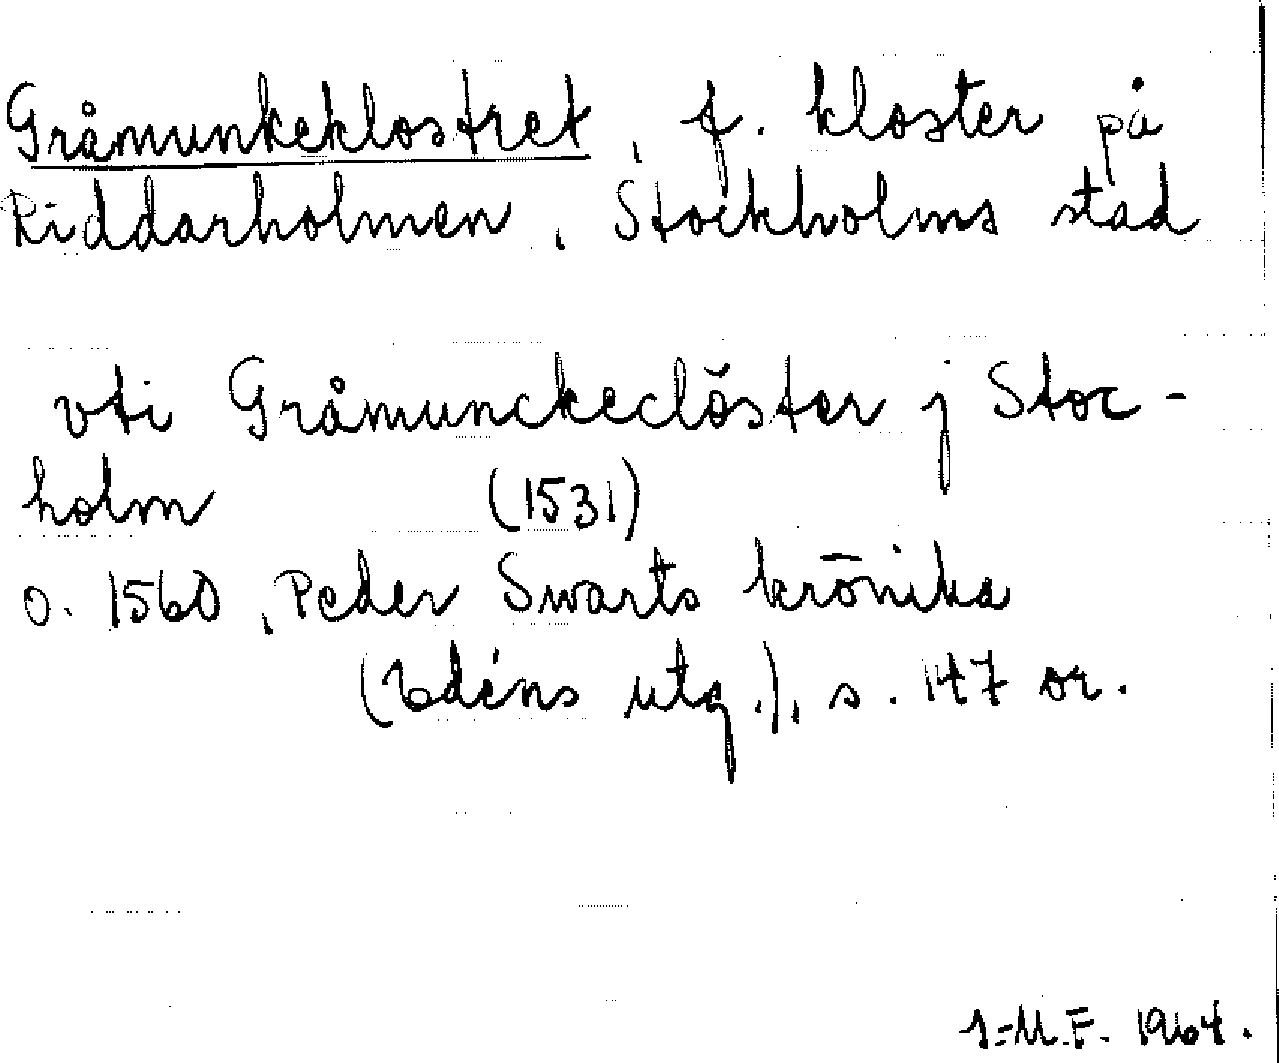 Gråmunkeklostret, f. kloster på
Riddarholmen, Stockholms stad
vti Gråmunckeclöster j Stoc-
holm (1531)
o. 1560, Peder Swarts krönika
(Edéns utg.), s. 147 or.
J-M.F. 1964.